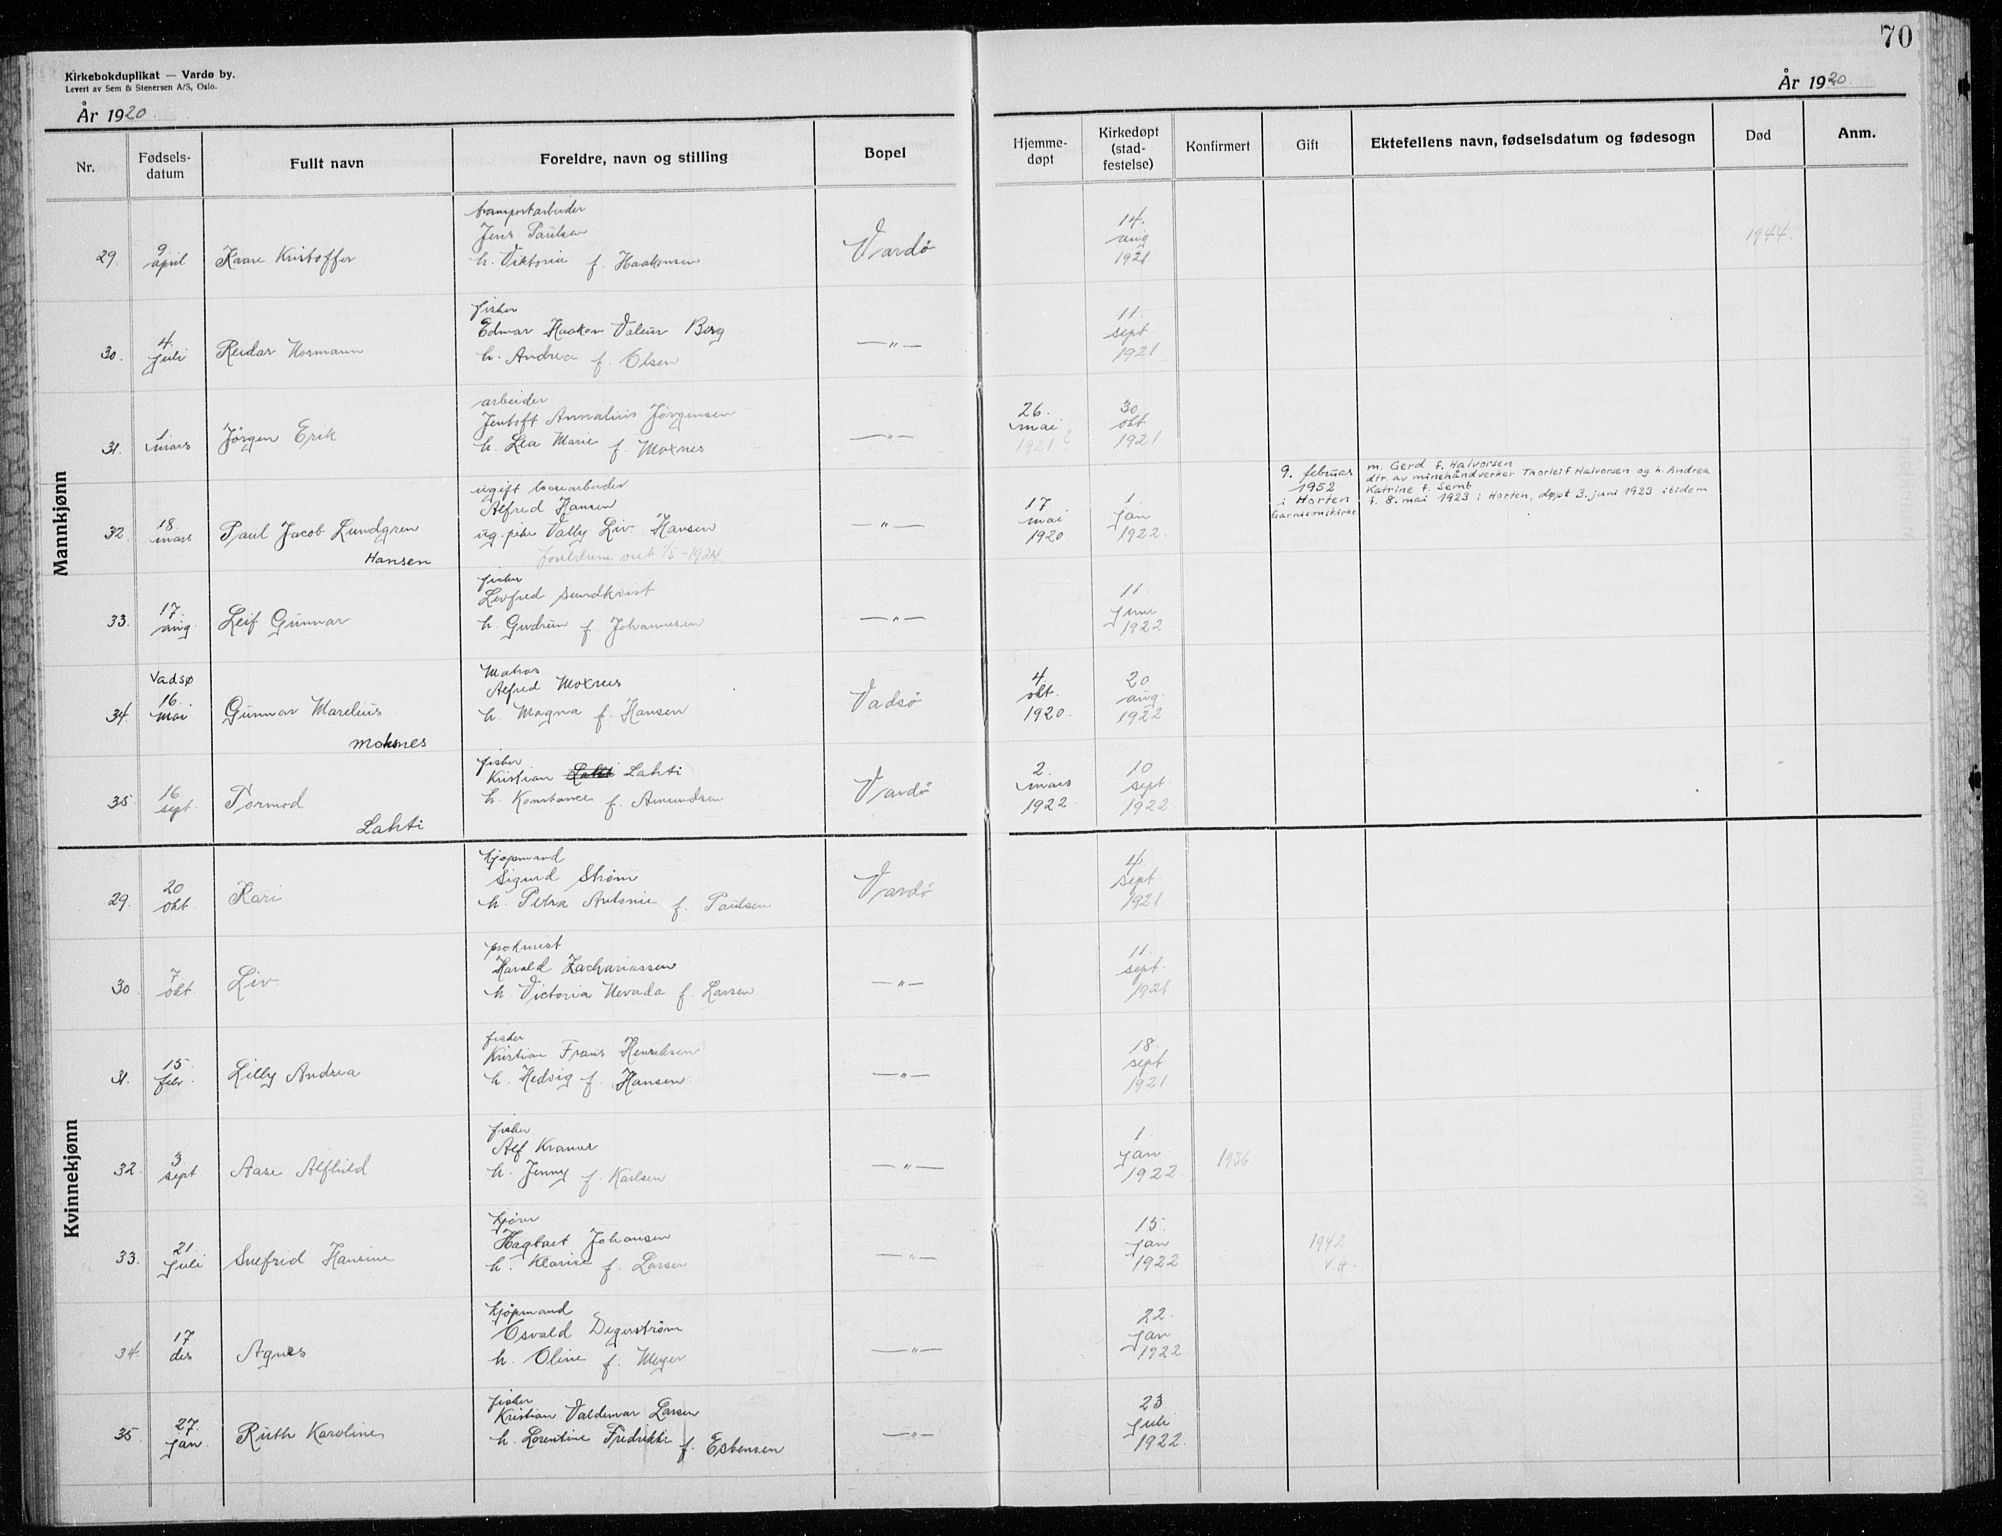 70
Kirkebokduplikat — Vardø by.
Levert av Sem & Stenersen A/S, Oslo.
År 1920.
År 1920.
Nr.
Fødsels-
datum
Fullt navn
Foreldre, navn og stilling
Bopel
Hjemme-
døpt
Kirkedøpt
(stad-
festelse)
Konfirmert
Gift
Ektefellens navn, fødselsdatum og fødesogn
Død
Anm.
Mannkjønn
29.
9
april
Kaare Kristoffer
transportarbeider
Jens Paulsen
h. Viktoria f. Haakonsen
Vardø
14.
aug
1921
1944.
30.
4.
juli
Reidar Normann
fisker
Edmar Haakon Valeur Berg
h. Andrea f. Olsen
—"—
11.
sept
1921.
31.
1
mars
Jørgen Erik
arbeider
Jentoft Annalius Jørgensen
h. Lea Marie f. Moxnes
—"—
26.
mai
1921
30
okt
1921
32.
18.
mars
Paul Jacob Lundgren
Hansen
ugift losearbeider
Alfred Hansen
ug. pike Vally Liv. Hansen
foreldrene viet 1/5-1924
—"—
17
mai
1920
1.
jan
1922.
9. februar
1952
i Horten
Garnisonskirke
m. Gerd f. Halvorsen
dtr. av minehåndverker Thorleif Halvorsen og h. Andrea
Katrine f. Semb
f. 8. mai 1923 i Horten, døpt 3. juni 1923 ibidem
33.
17.
aug.
Leif Gunnar
fisker
Leifred Sundkvist
h. Gudrun f. Johannesen
—"—
11.
juni
1922
34.
Vadsø
16.
mai
Gunnar Marelius
Moksnes
Matros
Alfred Moxnes
h. Magna f. Hansen
Vadsø
4.
okt.
1920.
20
aug.
1922
35.
16
sept.
Tormod
Lahti
fisker
Kristian Lahti
h. Konstance f. Amundsen
Vardø
2.
mars
1922.
10
sept
1922.
Kvinnekjønn
29.
20
okt.
Kari
kjøpmand
Sigurd Strøm
h. Petra Antonie f. Paulsen
Vardø
4.
sept.
1921
30.
7
okt.
Liv.
prokurist
Harald Zachariassen
h. Victoria Nevada f. Larsen
—"—
11.
sept.
1921
31.
15
febr.
Lilly Andrea
fisker
Kristian Frans Henriksen
h. Hedvig f. Hansen
—"—
18.
sept
1921
32.
3
sept
Aase Alfhild
fisker
Alf Kraner
h. Jenny f. Karlsen
—"—
1.
jan
1922
1936
33.
21.
juli
Snefrid Hansine
kjører
Hagbart Johansen
h. Klarise f. Larsen
—"—
15.
jan
1922
1942.
34.
17
des
Agnes
kjøpmand
Osvald Degerstrøm
h. Oline f. Meyer
—"—
22.
jan
1922.
35.
27.
jan.
Ruth Karoline
fisker
Kristian Valdemar Larsen
h. Lorentine Fredrikke f. Esbensen
—"—
23
juli
1922.